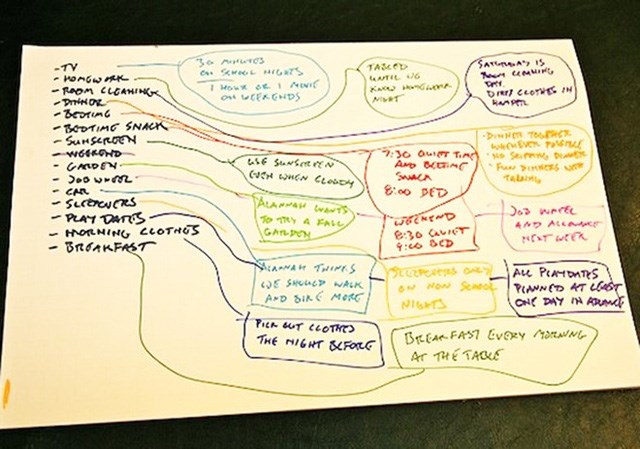 -TV
-HOMEWORK
-ROOM CLEANING
-DINNER
-BEDTIME
-BEDTIME SNACK
-SUNSCREEN
-WEEKEND
-GARDEN
-JOB WHEEL
-CAR
-SLEEPOVERS
-PLAY DATES
-MORNING CLOTHES
-BREAKFAST
30 MINUTES
ON SCHOOL NIGHTS
1 HOUR OR 1 MOVIE
ON WEEKENDS
TABLED
UNTIL WE
KNOW HOMEWORK
NIGHT
SATURDAY IS
ROOM CLEANING
DAY
DIRTY CLOTHES IN
HAMPER
USE SUNSCREEN
EVEN WHEN CLOUDY
7:30 QUIET TIME
AND BEDTIME
SNACK
8:00 BED
·DINNER TOGETHER
WHENEVER POSSIBLE
·NO SKIPPING DINNER
·FUN DINNERS WITH
TALKING
ALANNAH WANTS
TO TRY A FALL
GARDEN
WEEKEND
8:30 QUIET
9:00 BED
JOB WHEEL
AND ALLOWANCE
NEXT WEEK
ALANNAH THINKS
WE SHOULD WALK
AND BIKE MORE
SLEEPOVERS ONLY
ON NON SCHOOL
NIGHTS
ALL PLAYDATES
PLANNED AT LEAST
ONE DAY IN ADVANCE
PICK OUT CLOTHES
THE NIGHT BEFORE
BREAKFAST EVERY MORNING
AT THE TABLE